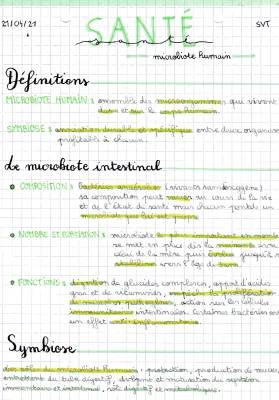 21/04/21
SANTÉ
SVT
santé
microbiote humain
Définitions
MICROBIOTE HUMAIN : ensemble des microorganismes qui vivent
dans et sur le corps humain.
SYMBIOSE : association durable et spécifique entre deux organismes
profitable à chacun.
Le microbiote intestinal
COMPOSITION : bactéries anaérobies (vivant sans oxygène)
sa composition peut varier au cours de la vie
et selon l'état de santé mais chacun possède un
microbiote qui lui est propre
NOMBRE ET FORMATION : microbiote le plus important en nombre
se met en place dès la naissance avec
celui de la mère puis évolue jusqu'à se
stabiliser vers l'âge de 3 ans.
FONCTIONS : digestion de glucides complexes, apport d'acides
gras et de vitamines, empêche la prolifération
de microbes pathogènes, action sur les cellules
immunitaires intestinales. Certaines bactéries ont
un effet anti-inflammatoire.
Symbiose
des rôles du microbiote humain : protection, production de mucus,
entretient du tube digestif, défense et maturation du système
immunitaire et intestinal, rôle digestif et métabolique.